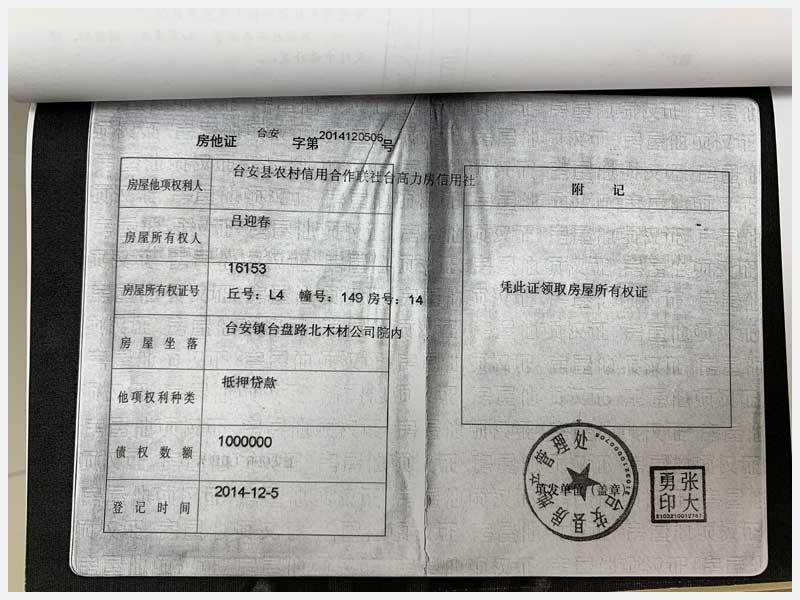 房他证 台安 字第2014120506号
房屋他项权利人 台安县农村信用合作联社台高力房信用社
房屋所有权人 吕迎春
房屋所有权证号 16153
丘号：L4 幢号：149 房号：14
房屋坐落 台安镇台盘路北木材公司院内
他项权利种类 抵押贷款
债权数额 1000000
登记时间 2014-12-5
附 记
凭此证领取房屋所有权证
填发单位（盖章）
张大勇印